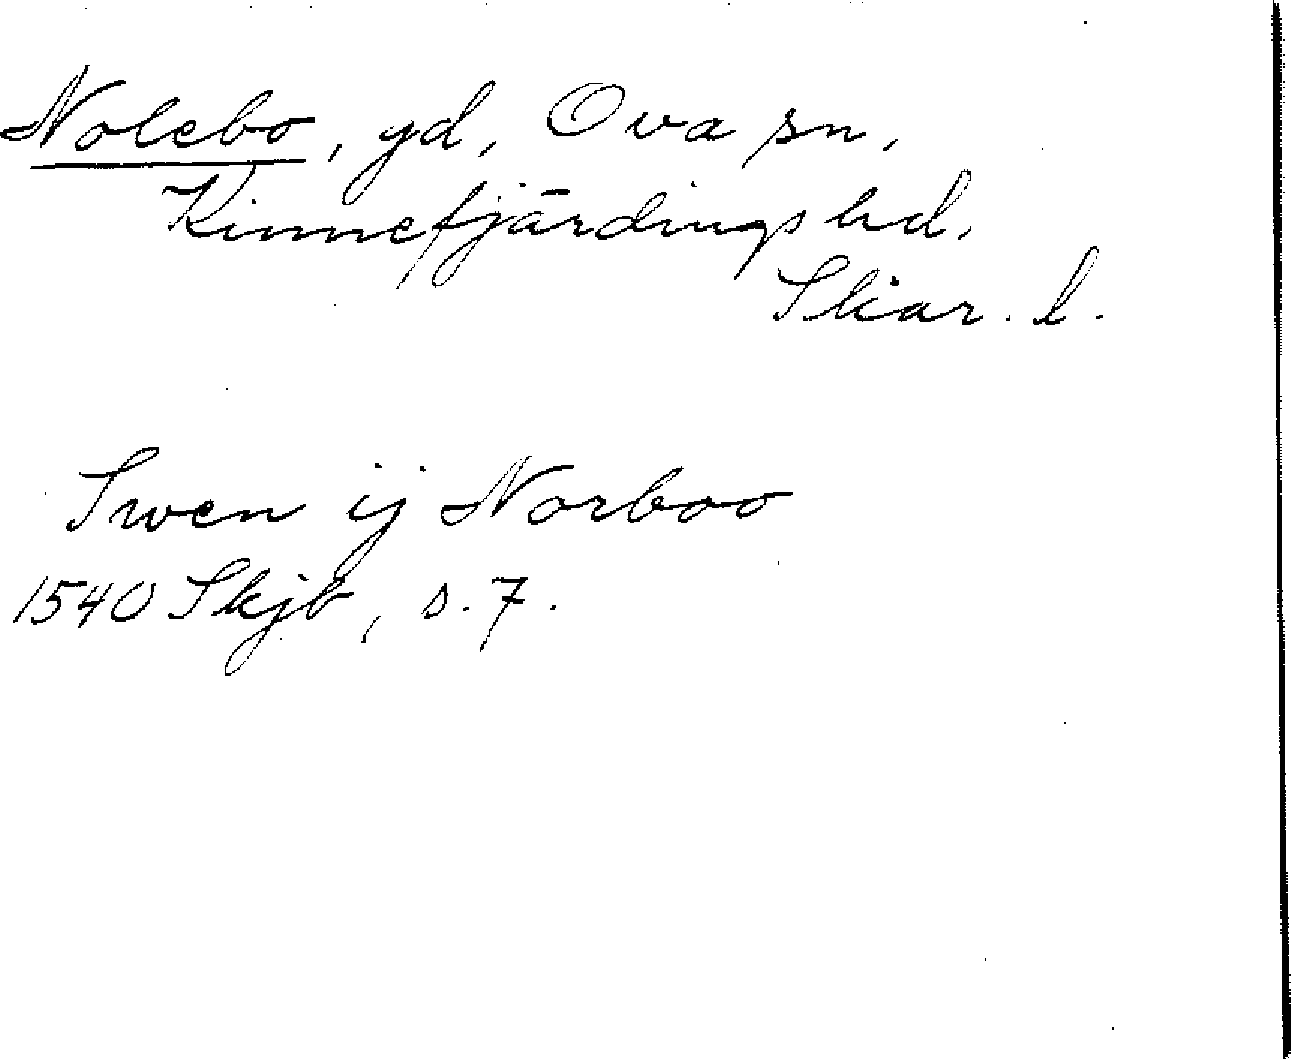 Nolebo, gd, Ova sn,
Kinnefjärdings hd,
Skar. l.
Swen ij Norboo
1540 Skjb, s. 7.